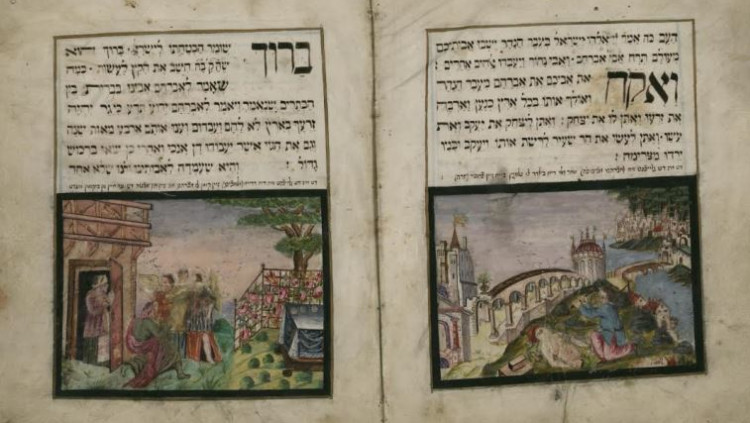 העם כה אמר יי אלהי ישראל בעבר הנהר ישבו אבותיכם
מעולם תרח אבי אברהם ואבי נחור ויעבדו אלהים אחרים :
ואקח את אביכם את אברהם מעבר הנהר
ואולך אותו בכל ארץ כנען וארבה
את זרעו ואתן לו את יצחק : ואתן ליצחק את יעקב ואת
עשו · ואתן לעשו את הר שעיר לרשת אותו ויעקב ובניו
ירדו מצרימה :
ברוך שומר הבטחתו לישראל · ברוך הוא
שהקבה חישב את הקץ לעשות · כמה
שאמר לאברהם אבינו בברית בין
הבתרים שנאמר ויאמר לאברהם ידוע תדע כי גר יהיה
זרעך בארץ לא להם ועבדום וענו אותם ארבע מאות שנה
וגם את הגוי אשר יעבודו דן אנכי ואחרי כן יצאו ברכוש
גדול : והיא שעמדה לאבותינו ולנו שלא אחד